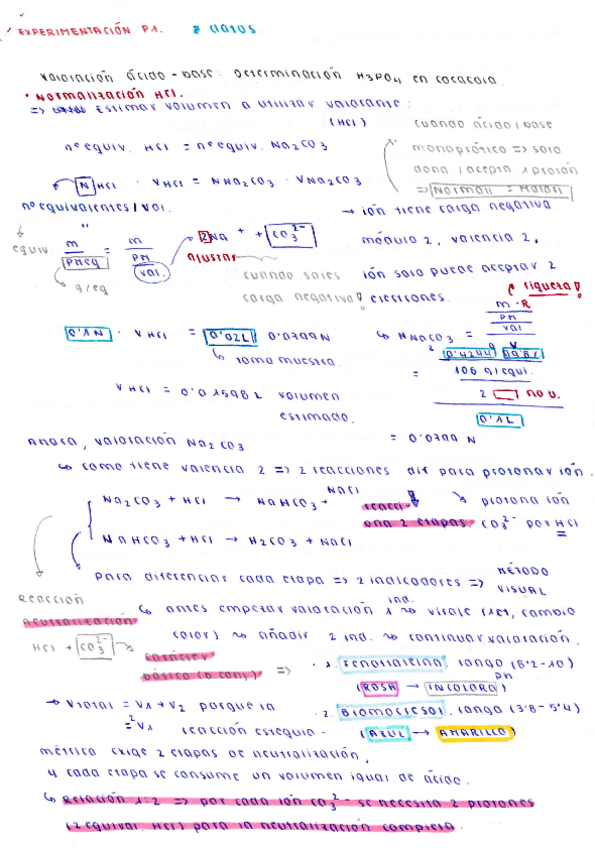 EXPERIMENTACIÓN P1. * DATOS
Valoración ácido-base: Determinación H3PO4 en cocacola.
• NORMALIZACIÓN HCl.
=> Estimar volumen a utilizar valorante:
(HCl)
cuando ácido/base
monoprótico => solo
dona/acepta 1 protón
=> Normal = Molar
nº equiv. HCl = nº equiv. Na2CO3
N HCl · V HCl = N Na2CO3 · V Na2CO3
nº equivalentes/Vol.
→ ión tiene carga negativa
módulo 2, valencia 2.
ión solo puede aceptar 2
electrones.
equiv m / PMeq = m / PM / Vol.
g/eq
2Na+ + CO3 2-
ajustar
cuando sales
carga negativa!
riqueza!
0'1N · V HCl = 0'02L · 0'0799N
toma muestra.
N Na2CO3 = m·R / PM / Vol
= 0'4244 · 99'8% / 106 g/equi. / 2 no v. / 0'1L
V HCl = 0'01598 L volumen
estimado.
= 0'0799 N
Ahora, valoración Na2CO3
↳ como tiene valencia 2 => 2 reacciones dif para protonar ión.
Na2CO3 + HCl → NaHCO3 + NaCl
NaHCO3 + HCl → H2CO3 + NaCl
reacci-
ona 2 etapas.
protona ión
CO3 2- por HCl
Para diferenciar cada etapa => 2 indicadores => MÉTODO
VISUAL
↳ antes empezar valoración 1 ind. ~> viraje (1er, cambio
color) ~> añadir 2 ind. ~> continuar valoración.
Reacción
neutralización
HCl + CO3 2-
carácter
básico (b conj)
=> · 1. Fenolftaleína, rango (8'2-10)
pH
(ROSA → INCOLORO)
· 2. Bromocresol, rango (3'8-5'4)
(AZUL → AMARILLO)
→ Vtotal = V1 + V2 porque la
= 2V1 reacción estequio-
métrica exige 2 etapas de neutralización,
y cada etapa se consume un volumen igual de ácido.
↳ Relación 1:2 => por cada ión CO3 2- se necesita 2 protones
(2 equival. HCl) para la neutralización completa.